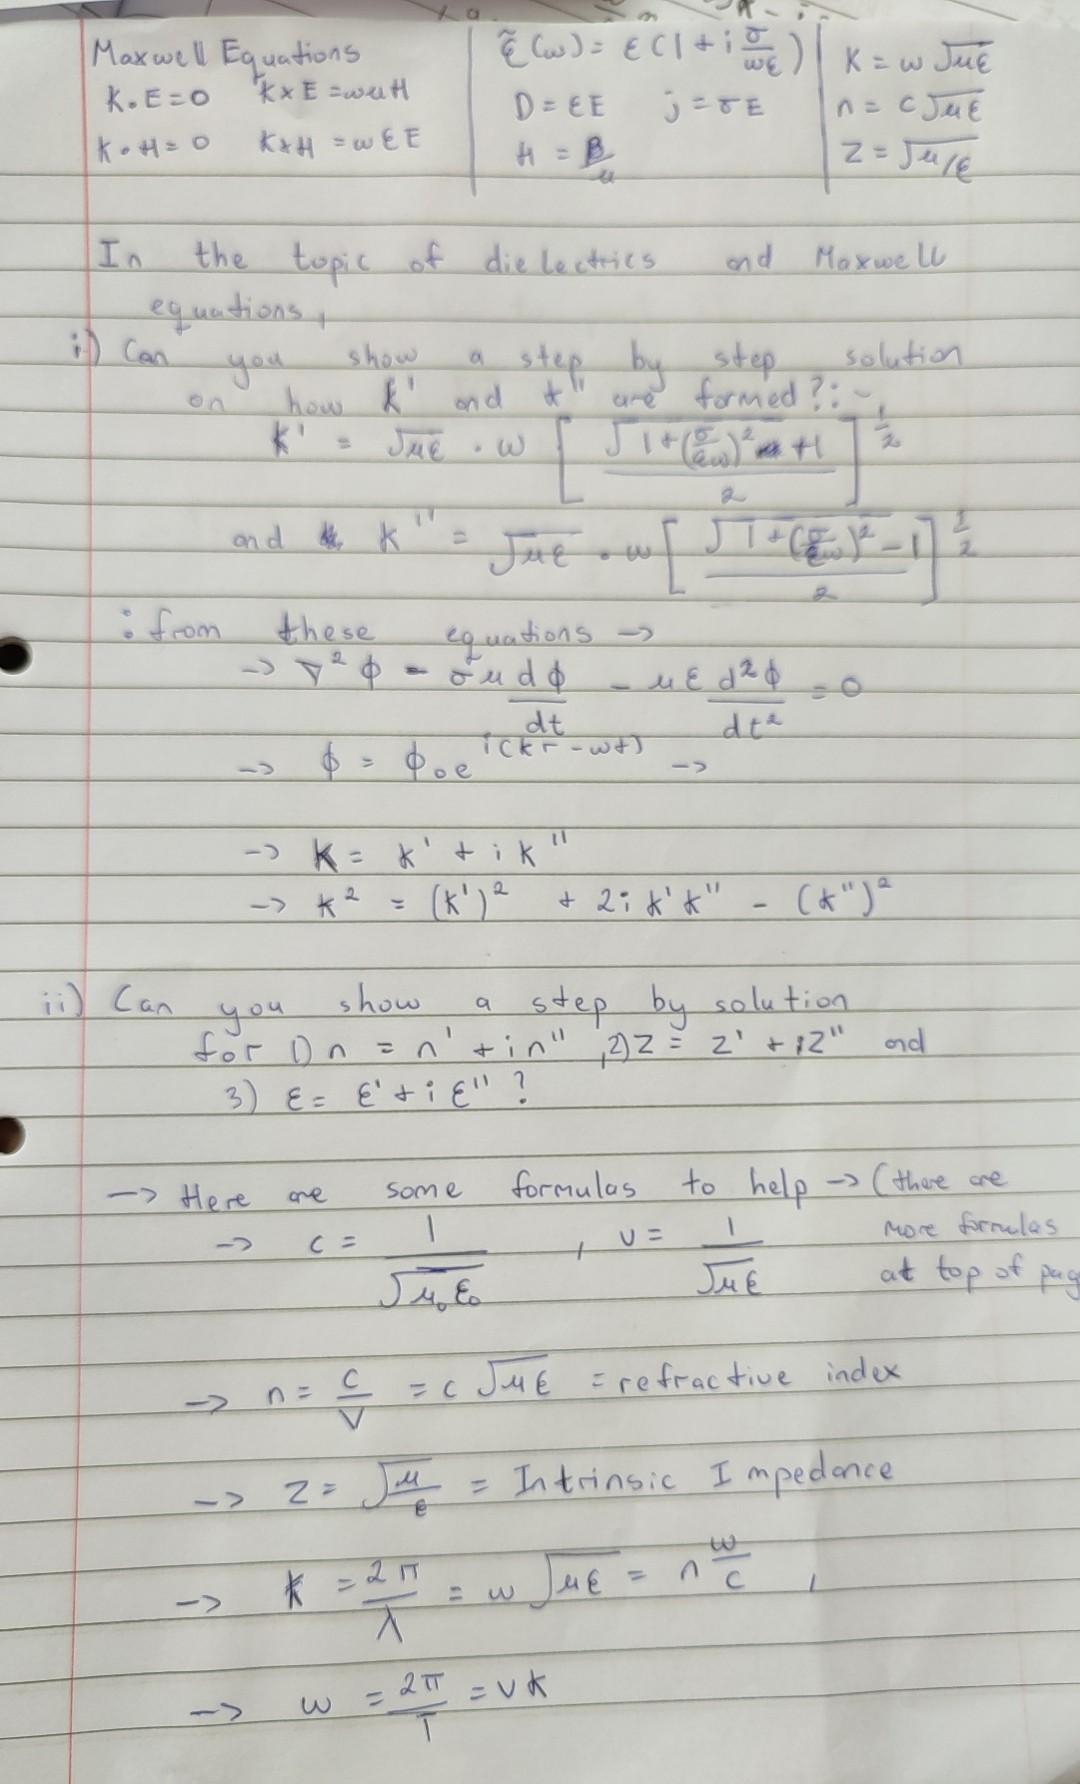 Maxwell Equations
K.E=0 K×E=ωμH
K.H=0 K×H=ωEE
ε̃(ω)=ε(1+iσ/ωε)
D=εE j=σE
H=B/μ
K=ω√με
n=c√με
Z=√μ/ε
In the topic of dielectrics and Maxwell
equations,
i) Can you show a step by step solution
on how k' and k" are formed?:-
k' = √με . ω [(√1+(σ/εω)² +1)/2]^1/2
and k" = √με . ω [(√1+(σ/εω)² -1)/2]^1/2
: from these equations →
→ ∇²φ - σμ dφ/dt - με d²φ/dt² = 0
→ φ = φ₀e^i(kr-ωt) →
→ K = k' + ik"
→ k² = (k')² + 2ik'k" - (k")²
ii) Can you show a step by solution
for 1) n = n' + in" ,2) Z = Z' + iZ" and
3) ε = ε' + iε" ?
→ Here are some formulas to help → (there are
more formulas
at top of pag
→ c = 1/√μ₀ε₀ , v = 1/√με
→ n = c/v = c√με = refractive index
→ Z = √μ/ε = Intrinsic Impedance
→ k = 2π/λ = ω√με = n ω/c ,
→ ω = 2π/T = vk